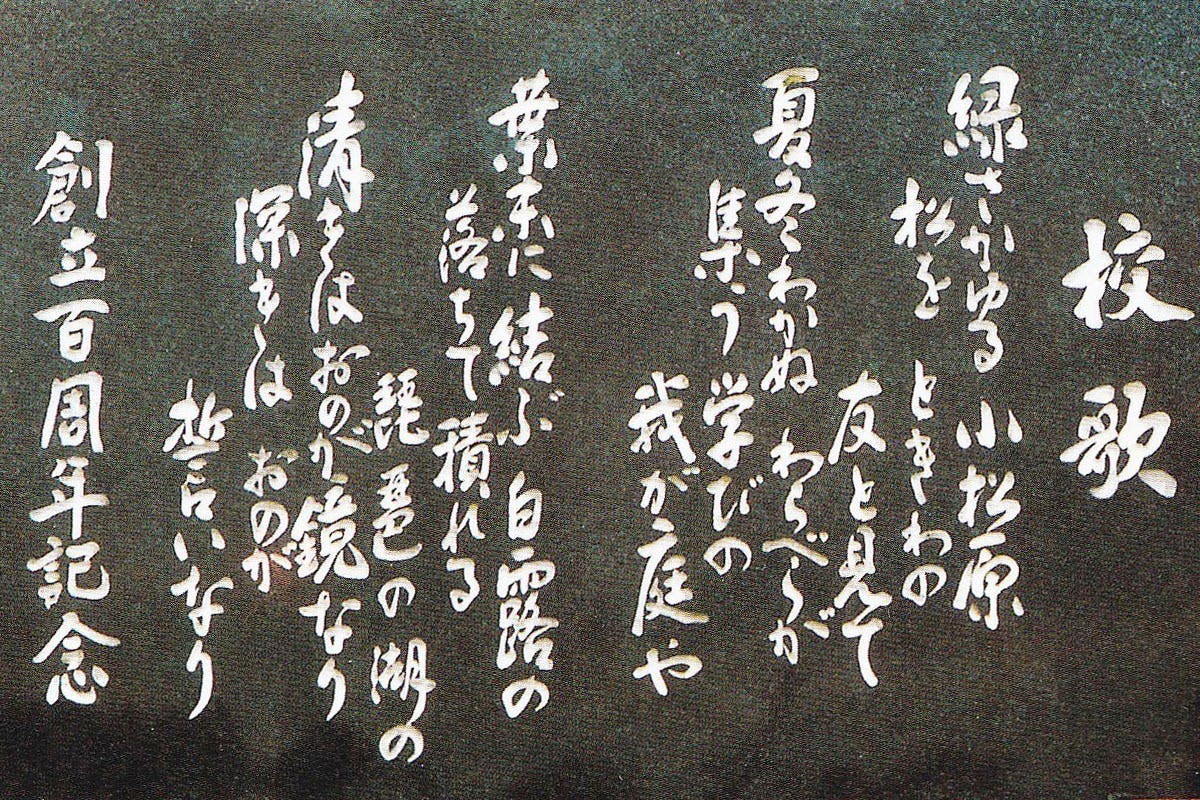 校歌
緑さかゆる 小松原
松を ときわの
友と見て
夏冬わかぬ わらべらが
集う 学びの
我が庭や
葉末に結ぶ 白露の
落ちて積れる
琵琶の湖の
清きはおのが鏡なり
深きは おのが
誓いなり
創立百周年記念